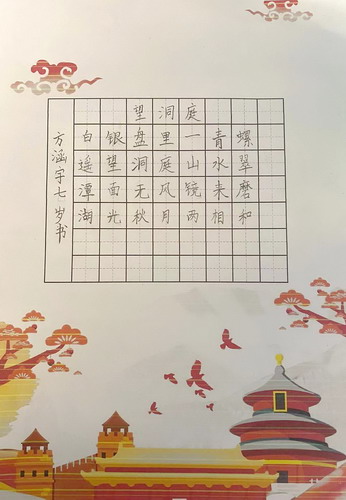 望洞庭
白银盘里一青螺
遥望洞庭山水翠
潭面无风镜来磨
湖光秋月两相和
方涵宇七岁书